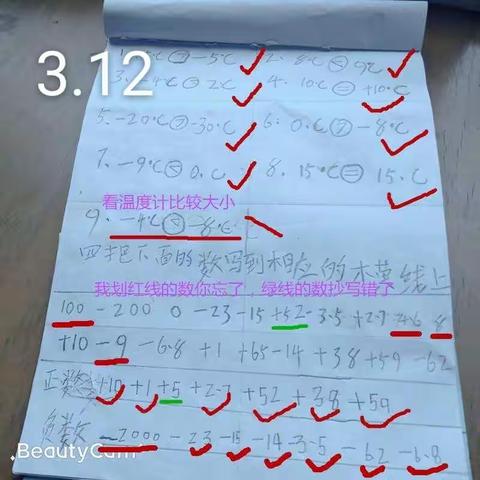 3.12
1. -5℃ = -5℃ 2. 8℃ < 9℃
3. -4℃ < 2℃ 4. 10℃ = +10℃
5. -20℃ > -30℃ 6. 0℃ > -8℃
7. -9℃ < 0℃ 8. 15℃ = 15℃
看温度计比较大小
9. -4℃ < -8℃
四把下面的数写到相应的木黄线上
我划红线的数你忘了,绿线的数抄写错了
100 -200 0 -23 -15 +52 -3.5 +2.7 2.6 8
+10 -9 -6.8 +1 +65 -14 +38 +59 -62
正数 +10 +1 +5 +2.7 +52 +38 +59
负数 -2000 -23 -15 -14 -3.5 -62 -6.8
BeautyCam